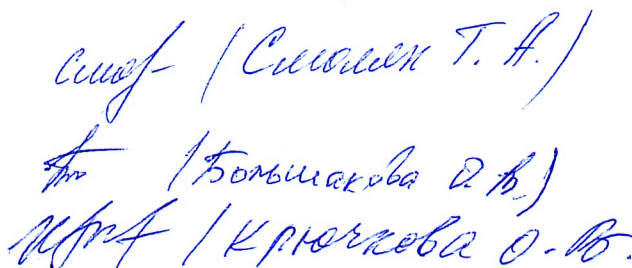 (Смолян Т. А.)
(Большакова О. В.)
(Крючкова О. В.